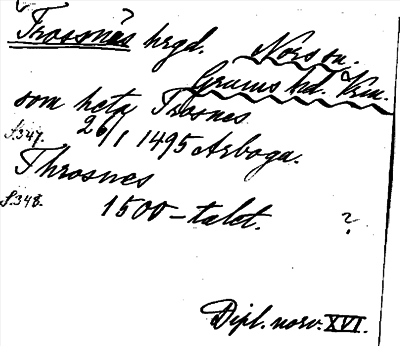 Trossnäs hrgd. Nors sn.
Grums hd. Vrm.
som heta Trosnes
s.347. 26/1 1495 Arboga.
Throsnes
s.348. 1500-talet. ?
Dipl. norv. XVI.